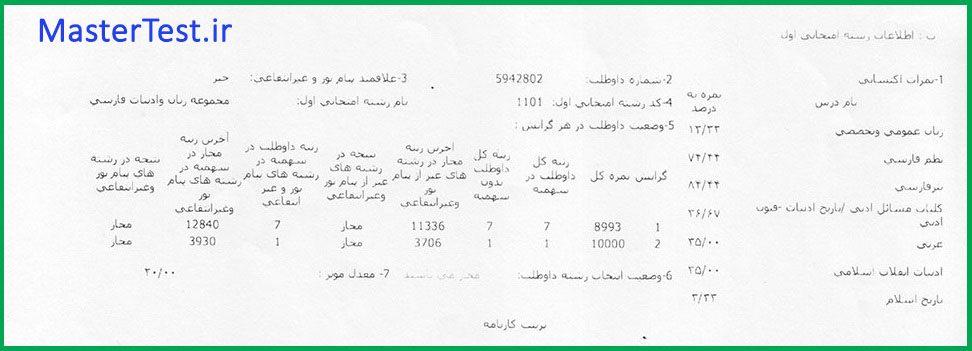 MasterTest.ir
ب : اطلاعات رشته امتحانی اول
1-نمرات اکتسابی
2-شماره داوطلب: 5942802
3-علاقمند پیام نور و غیرانتفاعی: خیر
نام درس
نمره به درصد
4-کد رشته امتحانی اول: 1101
نام رشته امتحانی اول: مجموعه زبان وادبیات فارسي
زبان عمومي وتخصصي ۱۳/۳۳
5-وضعیت داوطلب در هر گرایش :
نظم فارسي ۷۴/۴۴
نثرفارسي ۸۴/۴۴
کلیات مسائل ادبي /تاریخ ادبیات -فنون ادبي ۳۶/۶۷
عربي ۳۵/۰۰
ادبیات انقلاب اسلامي ۳۵/۰۰
تاریخ اسلام ۳/۳۳
گرایش
نمره کل
رتبه کل داوطلب در سهمیه
رتبه کل داوطلب بدون سهمیه
آخرین رتبه مجاز در رشته های غیر از پیام نور وغیرانتفاعی
نتیجه در رشته های غیر از پیام نور وغیرانتفاعی
رتبه داوطلب در سهمیه در رشته های پیام نور و غیر انتفاعی
آخرین رتبه مجاز در سهمیه در رشته های پیام نور وغیرانتفاعی
نتیجه در رشته های پیام نور وغیرانتفاعی
1 8993 7 7 11336 مجاز 7 12840 مجاز
2 10000 1 1 3706 مجاز 1 3930 مجاز
6-وضعیت انتخاب رشته داوطلب: مجاز می باشید
7- معدل موثر : ۲۰/۰۰
پرینت کارنامه